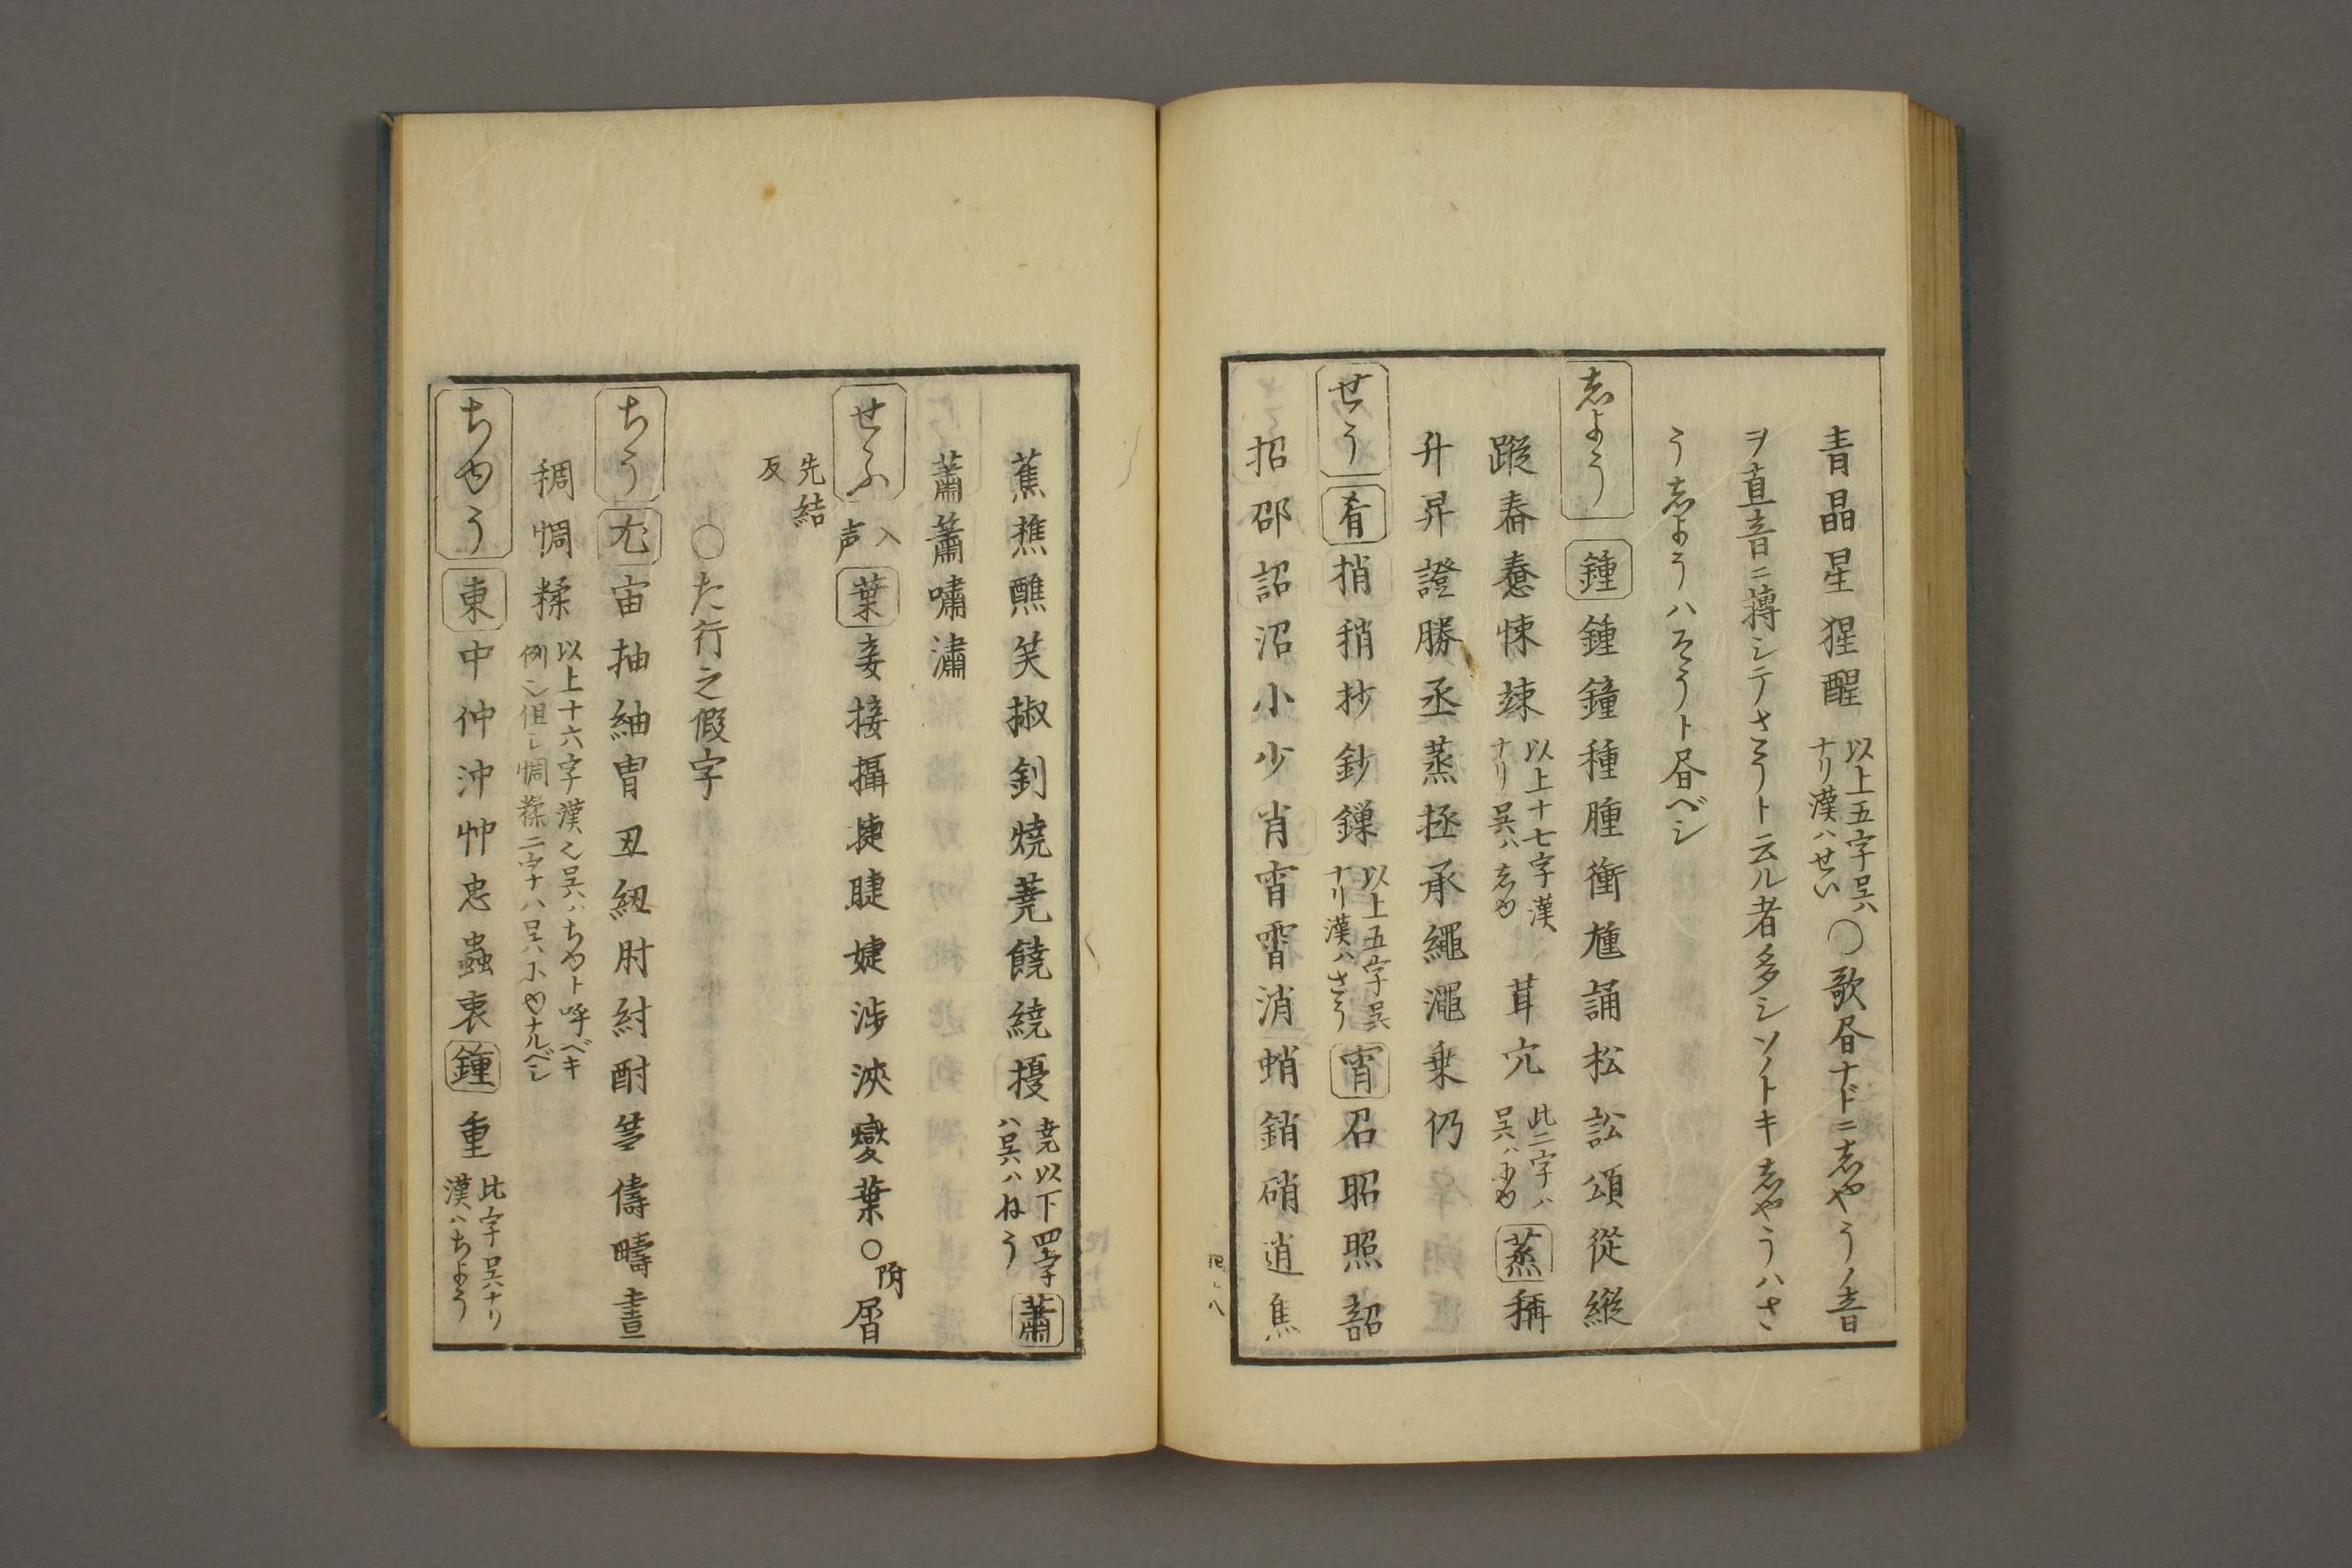 青晶星猩醒 以上五字呉ハナリ漢ハせい ○歌昼ナドニ志やうノ音
ヲ直音ニ摶シテさうト云ル者多シソノトキ志やうハさ
う志ようハそうト昼ベシ
志よう 鍾 鍾鐘種腫衝尰誦松訟頌從縦
蹤舂憃悚竦 以上十七字漢ナリ呉ハ志ゆ 茸宂 此二字ハ呉ハにゆ 蒸 稱
升昇證勝丞蒸拯承繩澠乗仍
せう 肴 梢稍抄鈔鏁 以上五字呉ナリ漢ハさう 宵 召昭照韶
招邵詔沼小少肖宵霄消蛸銷硝逍焦
蕉樵醮笑椒釗燒蕘饒繞擾 尭以下四字ハ呉ハねう 蕭
蕭簫嘯瀟
せふ 入声 葉 妾接攝捷睫婕渉浹燮葉○附屑
先結反
○た行之假字
ちう 尤 宙抽紬冑丑紐肘紂酎𥬉儔疇晝
稠惆糅 以上十六字漢也呉ハちゆト呼ベキ例シ但シ惆糅二字ナハ呉ハにゆナルベシ
ちゆう 東 中仲沖忡忠蟲衷 鍾 重 此字呉ナリ漢ハちよう